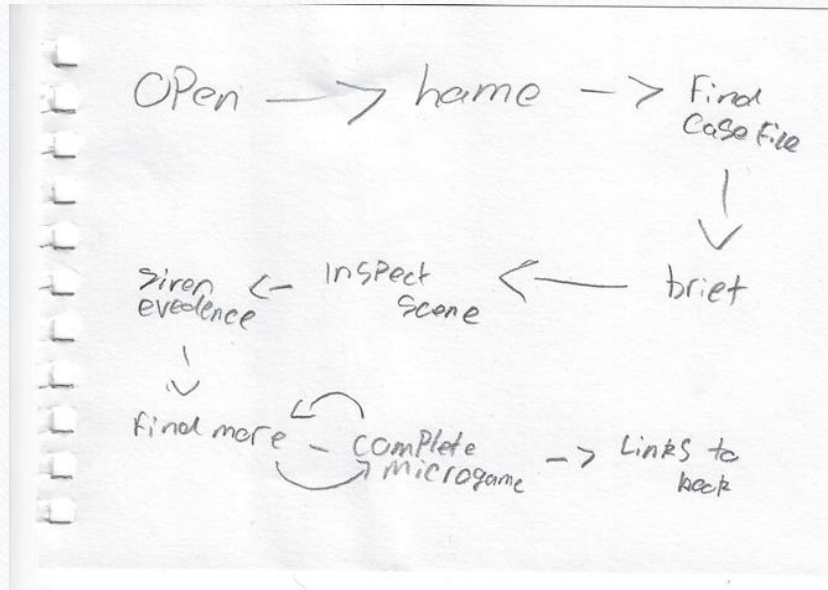 OPen → home → Find
Case File
brief
InSPect
Scene
evedence
Find more - comPlete
microgame
→ Links to